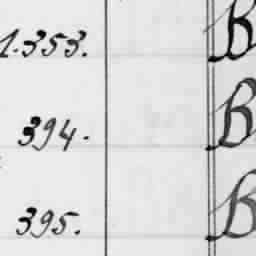 1.353. B
394. B
395. B